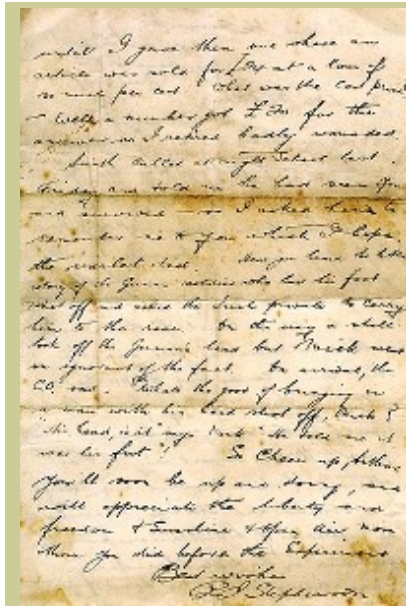 until I gave them one where an
article was sold for £ at a loss of
so much per cent what was the cost price
- Well a number got £ for the
answer, so I retired badly wounded.
Smith called at night School last
Friday and told me he had seen you
and survived — so I asked him to
remember me to you which I hope
the rascal did. Now you have to
story of the German who had his foot
shot off and asked the Irish private to carry
him to the rear. On the way a shell
took off the German's head but Mick was
in ignorance of the fact. On arrival, the
C.O. said. What's the good of bringing in
a man with his head shot off, Mick?
"His head, is it" says Mick "He told me it
was his foot"! So Cheer up,
you'll soon be up and doing, and
will appreciate the liberty and
freedom & Sunshine & Open Air more
than you did before the Experience
Best wishes